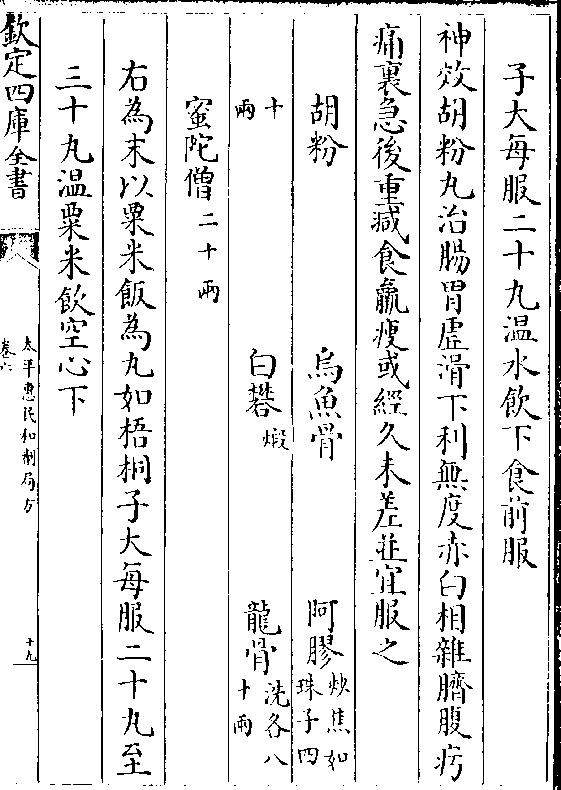 子大每服二十丸温水飲下食前服
神效胡粉丸治腸胃虚滑下利無度赤白相雜臍腹㽲
痛裏急後重减食羸瘦或經久未差並宜服之
胡粉 烏魚骨 阿膠炒焦如珠子四
十兩 白礬煅 龍骨洗各八十兩
蜜陀僧二十兩
右為末以粟米飯為丸如梧桐子大每服二十丸至
三十丸温粟米飲空心下
欽定四庫全書
太平惠民和劑局方
卷六
十九